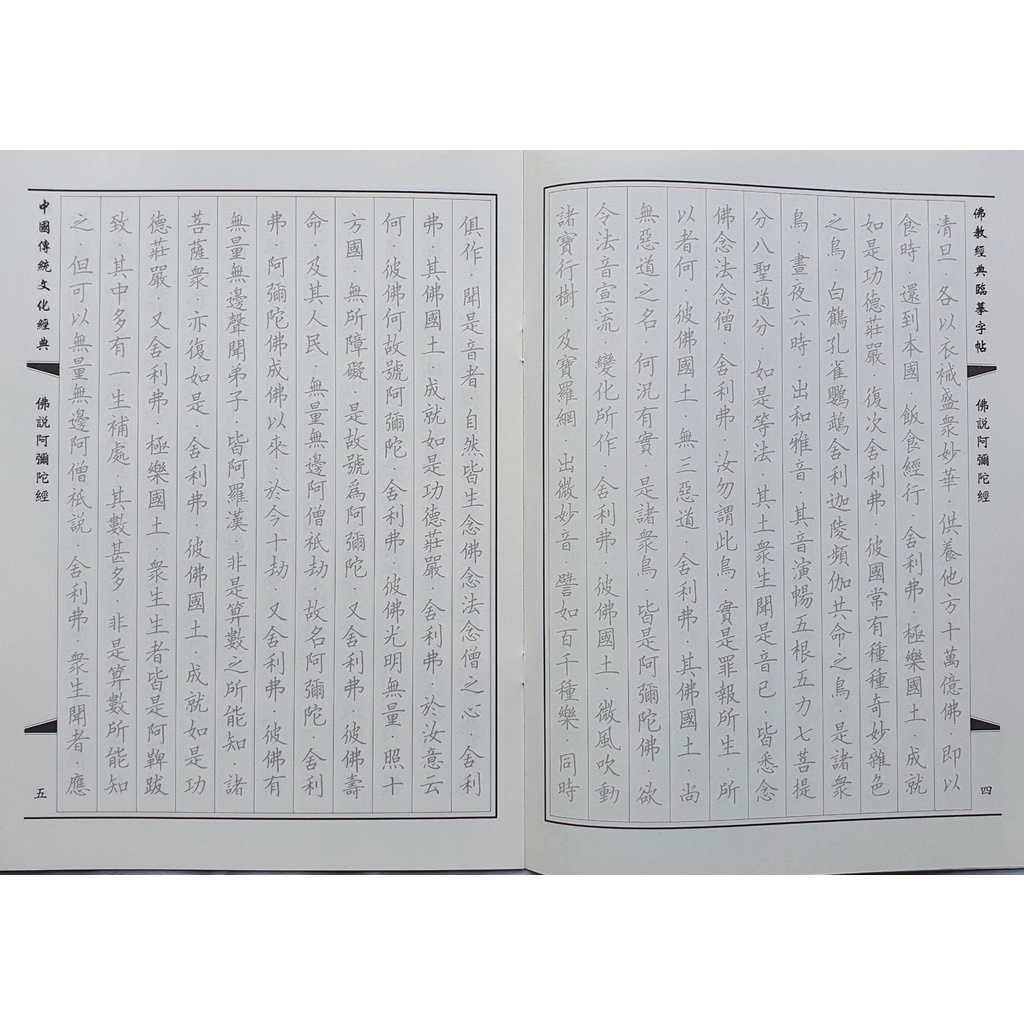 佛教經典臨摹字帖
佛說阿彌陀經
四
清旦．各以衣祴盛衆妙華．供養他方十萬億佛．即以
食時．還到本國．飯食經行．舍利弗．極樂國土．成就
如是功德莊嚴．復次舍利弗．彼國常有種種奇妙雜色
之鳥．白鶴孔雀鸚鵡舍利迦陵頻伽共命之鳥．是諸衆
鳥．晝夜六時．出和雅音．其音演暢五根五力七菩提
分八聖道分．如是等法．其土衆生聞是音已．皆悉念
佛念法念僧．舍利弗．汝勿謂此鳥．實是罪報所生．所
以者何．彼佛國土．無三惡道．舍利弗．其佛國土．尚
無惡道之名．何況有實．是諸衆鳥．皆是阿彌陀佛．欲
令法音宣流．變化所作．舍利弗．彼佛國土．微風吹動
諸寶行樹．及寶羅網．出微妙音．譬如百千種樂．同時
俱作．聞是音者．自然皆生念佛念法念僧之心．舍利
弗．其佛國土．成就如是功德莊嚴．舍利弗．於汝意云
何．彼佛何故號阿彌陀．舍利弗．彼佛光明無量．照十
方國．無所障礙．是故號爲阿彌陀．又舍利弗．彼佛壽
命．及其人民．無量無邊阿僧祇劫．故名阿彌陀．舍利
弗．阿彌陀佛成佛以來．於今十劫．又舍利弗．彼佛有
無量無邊聲聞弟子．皆阿羅漢．非是算數之所能知．諸
菩薩衆．亦復如是．舍利弗．彼佛國土．成就如是功
德莊嚴．又舍利弗．極樂國土．衆生生者皆是阿鞞跋
致．其中多有一生補處．其數甚多．非是算數所能知
之．但可以無量無邊阿僧祇說．舍利弗．衆生聞者．應
中國傳統文化經典
佛說阿彌陀經
五